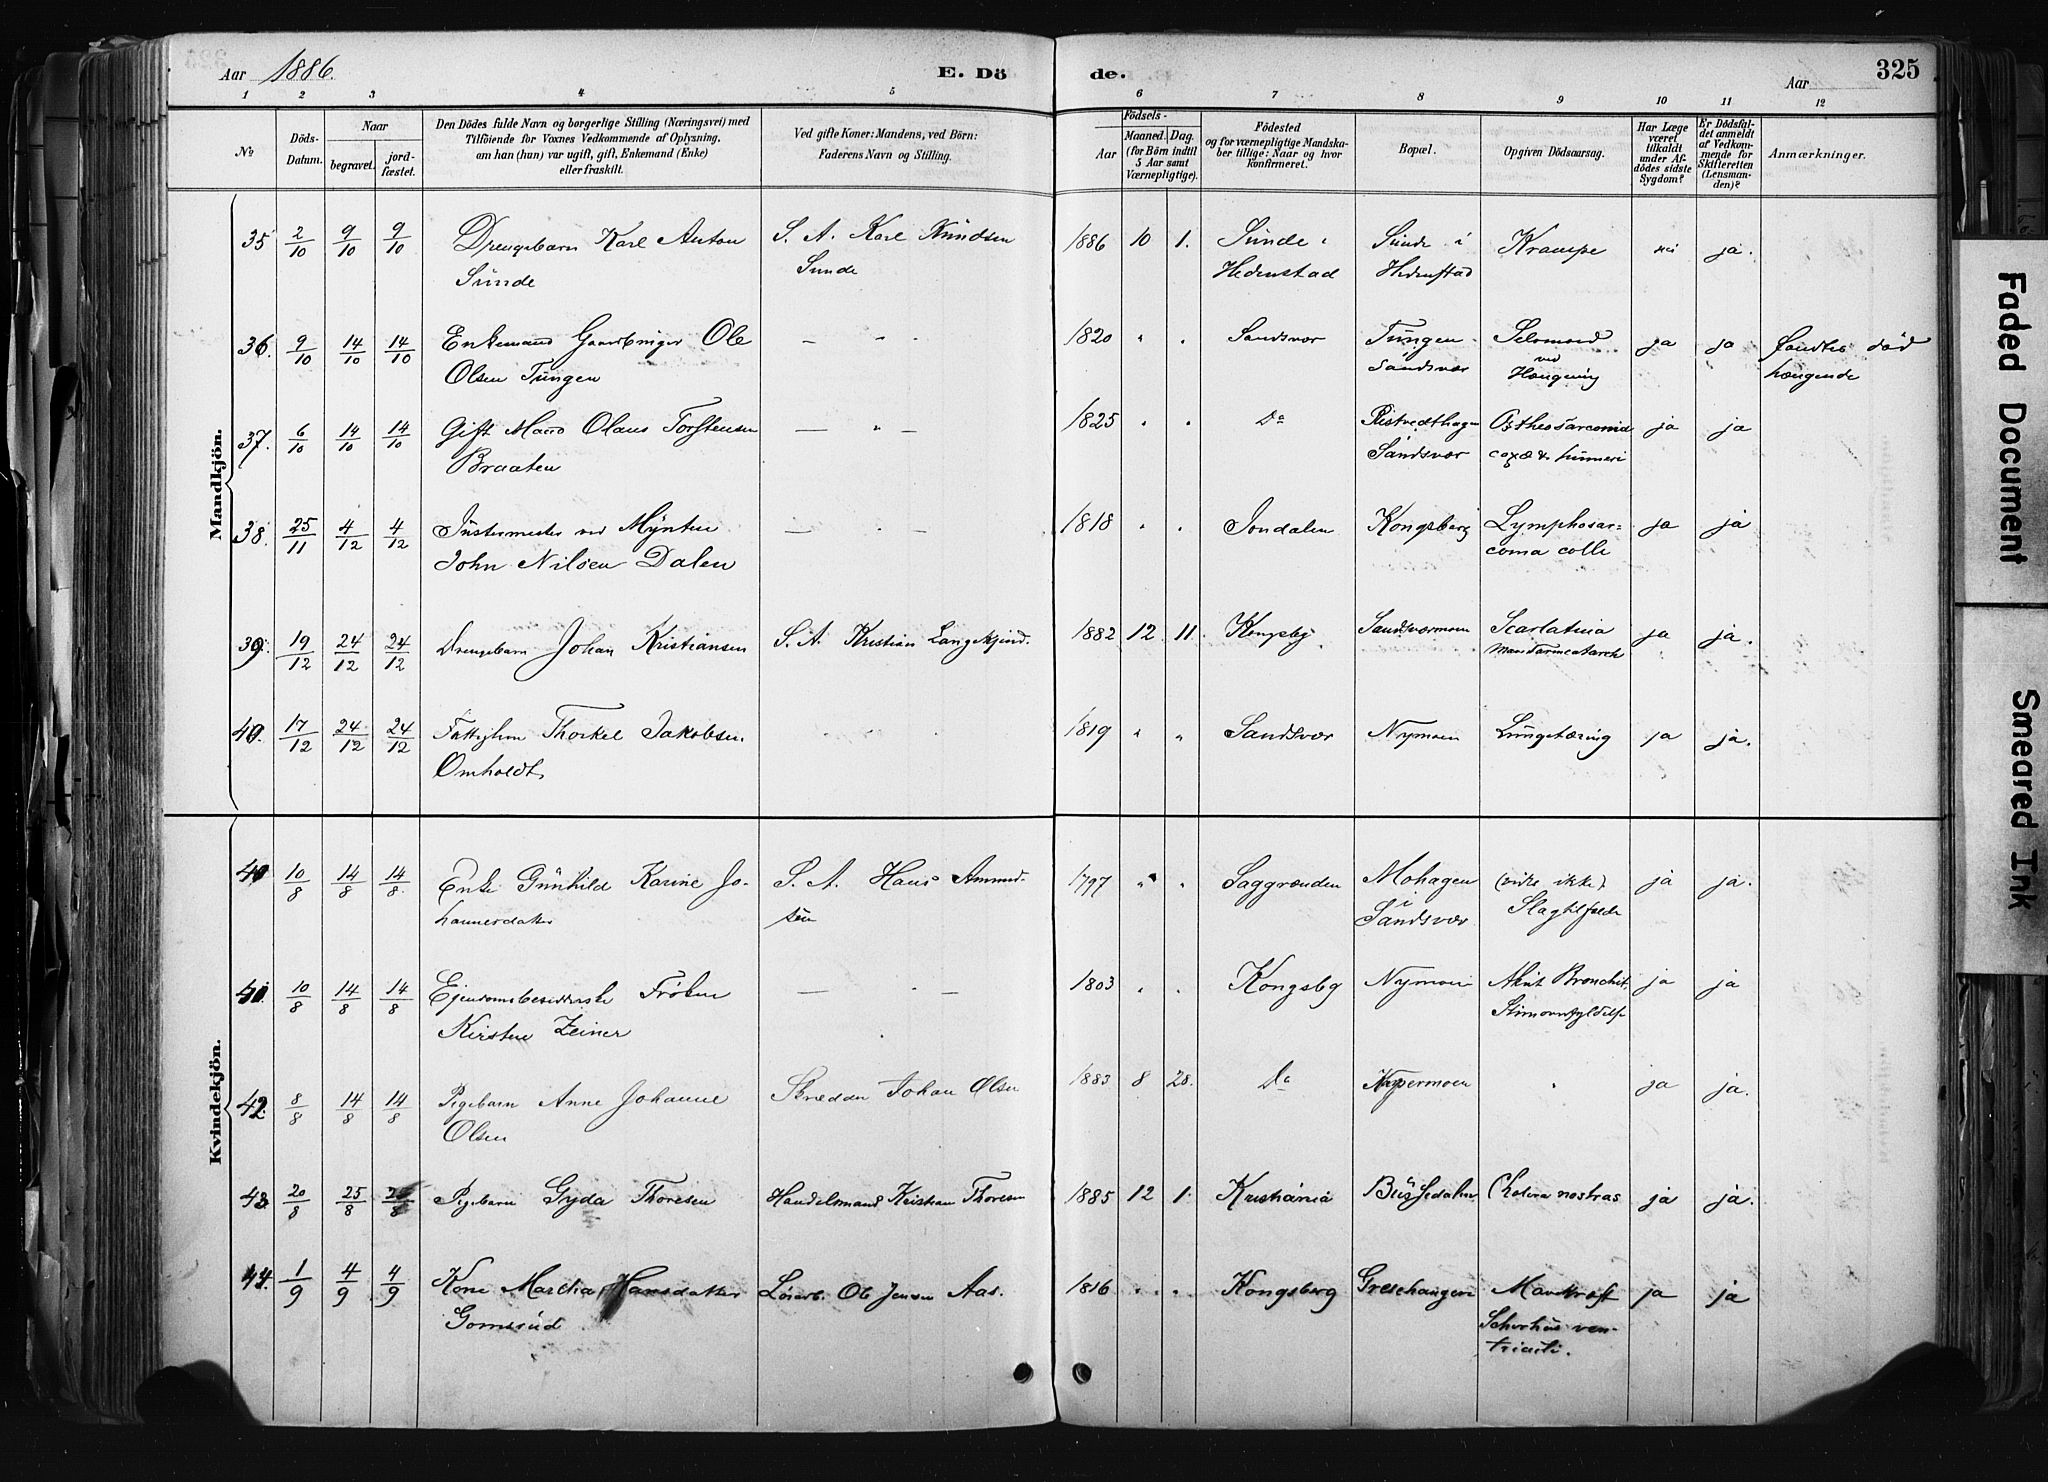 Aar 1886. E. Döde. Aar 325
1 2 3 4 5 6 7 8 9 10 11 12
No
Döds-Datum.
Naar
begravet.
jordfæstet.
Den Dödes fulde Navn og borgerlige Stilling (Næringsvei) med
Tilföiende for Voxnes Vedkommende af Oplysning,
om han (hun) var ugift, gift, Enkemand (Enke)
eller fraskilt.
Ved gifte Koner: Mandens, ved Börn:
Faderens Navn og Stilling.
Födsels-
Aar
Maaned. Dag.
(for Börn indtil
5 Aar samt
Værnepligtige).
Födested
og for værnepligtige Mandskaber
tillige: Naar og hvor
konfirmeret.
Bopæl.
Opgiven Dödsaarsag.
Har Læge
været
tilkaldt
under Afdödes
sidste
Sygdom?
Er Dödsfaldet
anmeldt
af Vedkommende
for
Skifteretten
(Lensmanden)?
Anmærkninger.
Mandkjön.
35 2/10 9/10 9/10 Drengebarn Karl Anton S. A. Karl Knudsen 1886 10 1. Sunde i Sunde i Krampe nei ja.
Sunde Sunde Hedenstad Hedenstad
36. 9/10 14/10 14/10 Enkemand Gaardbruger Ole — " 1820 " " Sandsvær Tungen Selvmord ja ja Fandtes död
Olsen Tungen Sandsvær ved Hængning hængende
37. 6/10 14/10 14/10 Gift Mand Olaus Torstensen — " — 1825 " " Do Ristvedthagen Ostheosarcomia ja ja
Braaten Sandsvær coxæ & humeri
38. 25/11 4/12 4/12 Justermester ved Mynten — " — 1818 " " Jondalen Kongsberg Lymphosar= ja ja
John Nilsen Dalen coma colli
39. 19/12 24/12 24/12 Drengebarn Johan Kristiansen S. A. Kristian Langekjend. 1882 12 11. Kongsbg Sandsværmoen Scarlatina ja ja.
40. 17/12 24/12 24/12 Fattiglem Thorkel Jakobsen 1819 " " Sandsvær Nymoen Lungetæring ja ja.
Omholdt
Kvindekjön.
40 10/8 14/8 14/8 Enke Gunhild Karine Jo- S. A. Hans Amund- 1797 " " Saggrenden Mohagen (virke ikke) ja ja.
hannesdatter sen i Sandsvær Slagtilfælde
41. 10/8 14/8 14/8 Ejendomsbesidderske Frøken — — 1803 " " Kongsbg Nymoen Akut Bronchit. ja ja
Kirstine Zeiner
42. 8/8 14/8 14/8 Pigebarn Anne Johanne Skrædder Johan Olsen 1883 8 28. Do Nypermoen " ja ja.
Olsen
43 20/8 25/8 25/8 Pigebarn Gyda Thoresen Handelsmand Kristian Thoresen 1885 12 1. Kristiania Cholera nostras ja ja.
44. 1/9 4/9 4/9 Kone Martha Hansdatter Løierb. Ole Jensen Aas. 1816 " " Kongsberg Mavekræft ja ja
Gomsrud Schirhus ven-
triculi.
Faded Document
Smeared Ink